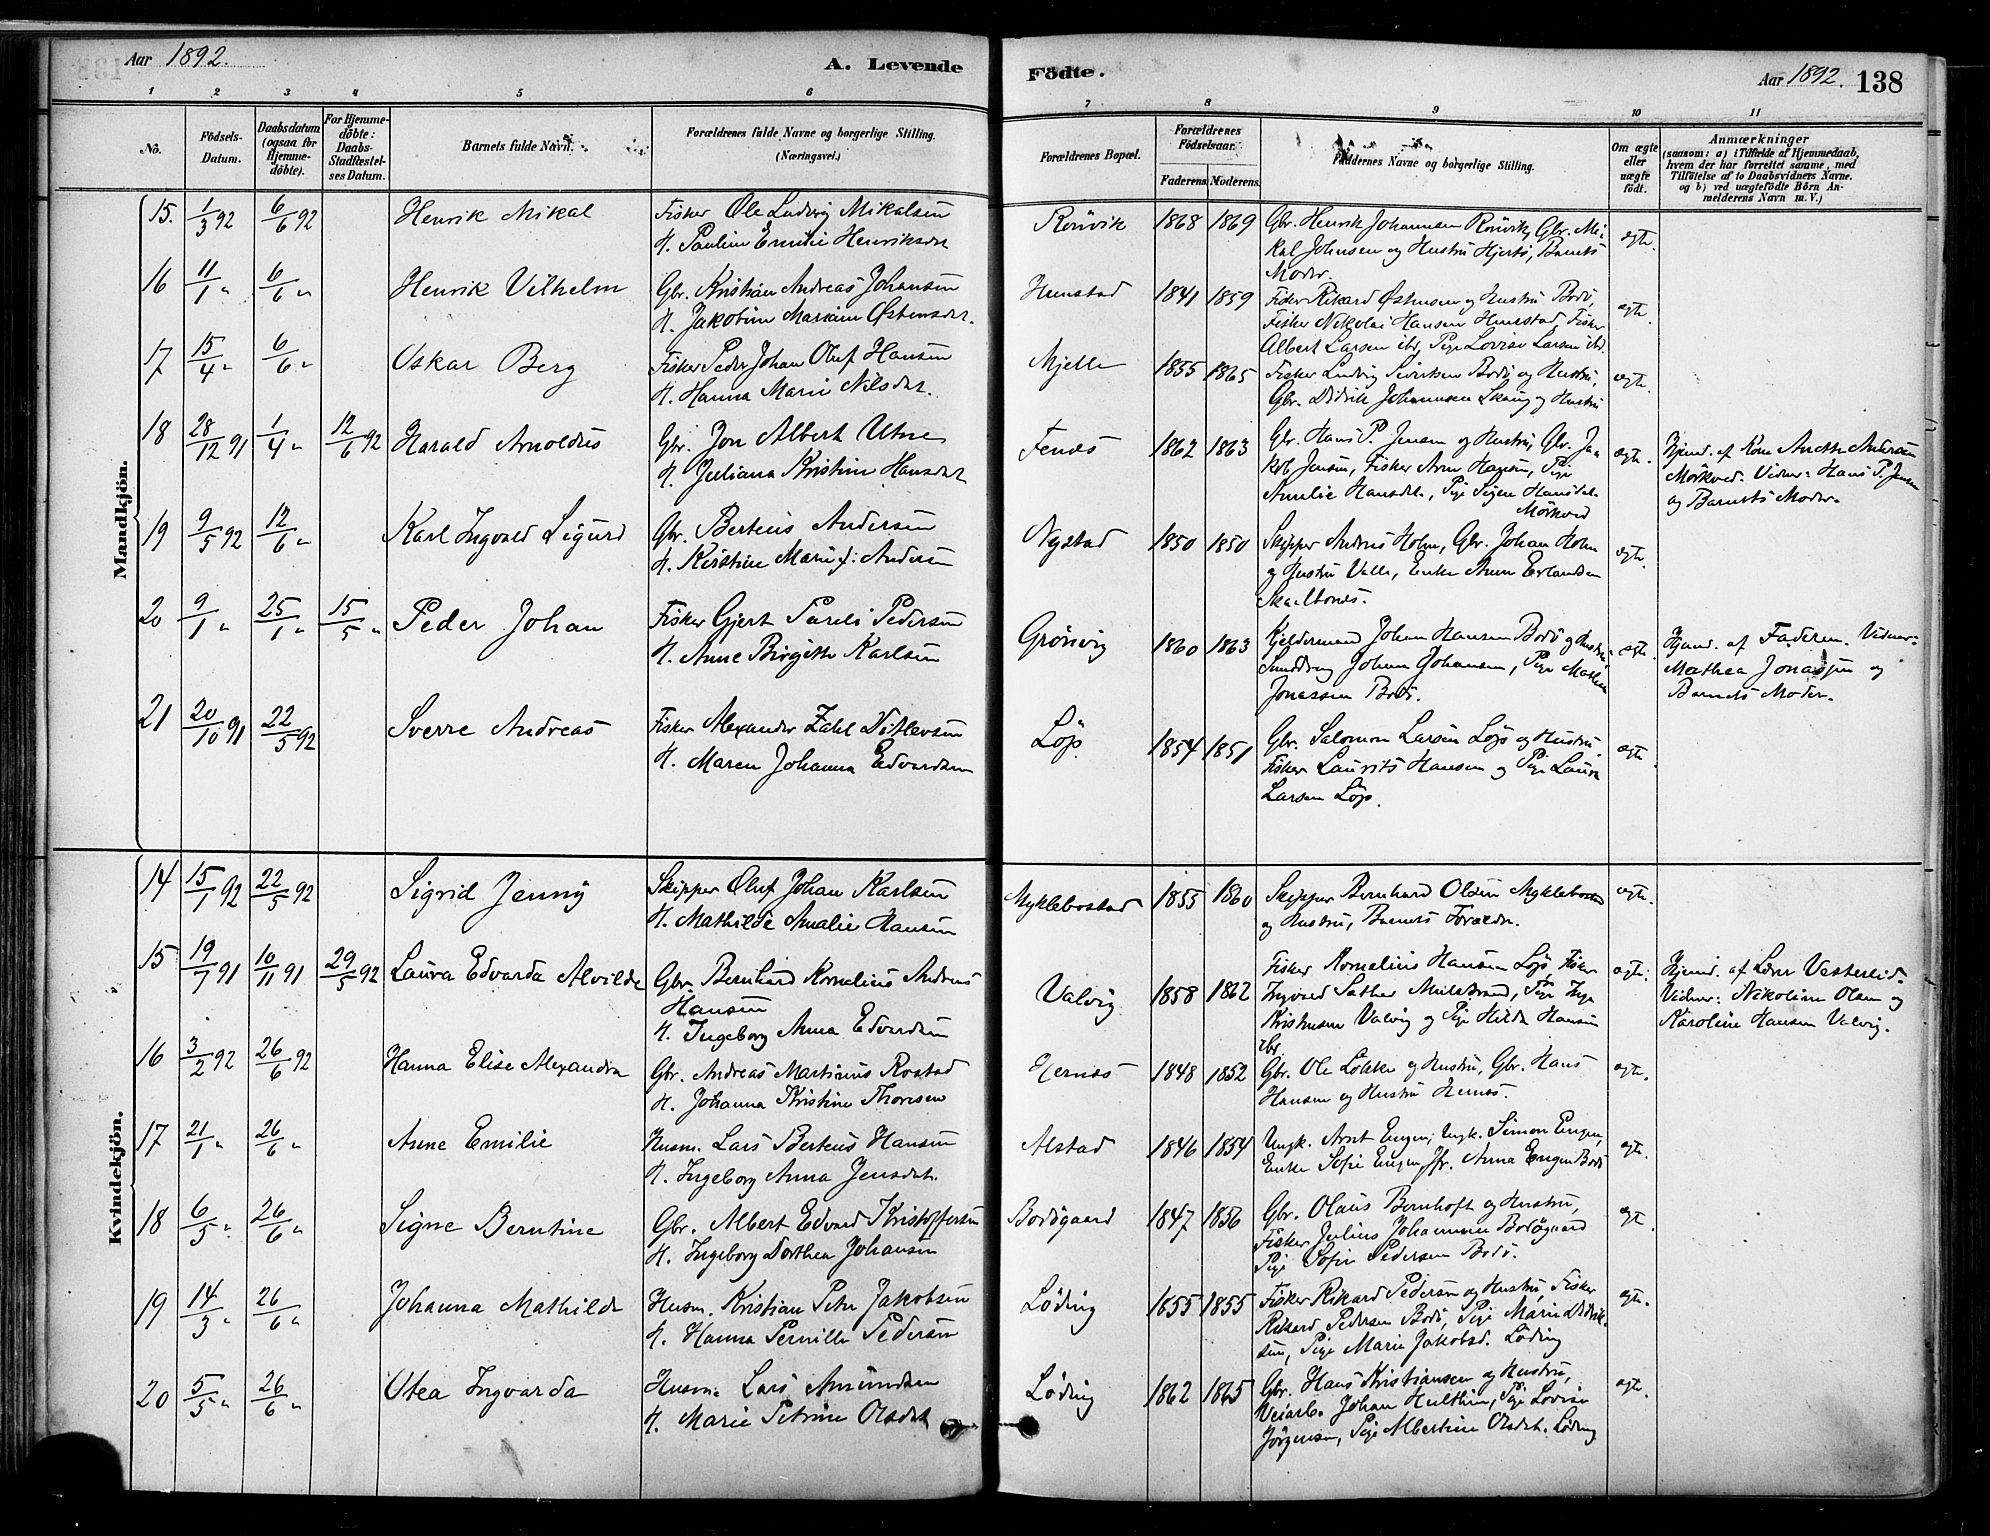 Aar 1892.
A. Levende Födte.
Aar 1892. 138
1 2 3 4 5 6 7 8 9 10 11
No.
Födsels-Datum.
Daabsdatum (ogsaa for Hjemme-döbte).
For Hjemme-döbte: Daabs-Stadfæstel-ses Datum.
Barnets fulde Navn.
Forældrenes fulde Navne og borgerlige Stilling.
(Næringsvei.)
Forældrenes Bopæl.
Forældrenes Födselsaar.
Faderens. Moderens.
Faddernes Navne og borgerlige Stilling.
Om ægte eller uægte födt.
Anmærkninger
(saasom: a) i Tilfælde af Hjemmedaab,
hvem der har forrettet samme, med
Tilföielse af to Daabsvidners Navne.
og b) ved uægtefödte Börn An-
melderens Navn m. V.)
Mandkjön.
15. 1/3 92 6/6 92 Henrik Mikal
Fisker Ole Ludvig Mikalsen
H. Pauline Emilie Henriksdat
Rönvik 1868 1869
Gbr. Henrik Johannsen Rönvik, Gbr. Mi-
kal Johnsen og Hustru Hjertö, Barnets
Moder.
ægte.
16 11/1 " 6/6 " Henrik Vilhelm
Gbr. Kristian Andreas Johansen
H. Jakobine Mariane Østensdat.
Hunstad 1841 1859
Fisker Rikard Østensen og Hustru Bodö,
Fisker Nikolai Hansen Hunstad, Fisker
Albert Larsen ibd, Pige Lovise Larsen ibd.
ægte.
17 15/4 " 6/6 " Oskar Berg
Fisker Peder Johan Oluf Hansen
H. Hanna Marie Nilsdat.
Mjelle 1855 1865
Fisker Ludvig Sivertsen Bodö og Hustru,
Gbr. Didrik Johannesen Skaug og Hustru
ægte.
18 28/12 91 1/4 " 12/6 92 Harald Arnoldus
Gbr. Jon Albert Utne
H. Juliana Kristine Hansdat
Fenes 1862 1863
Gbr. Hans P. Jensen og Hustru, Gbr. Ja-
kob Jensen, Fisker Arne Hansen, Pige
Amelie Hansdat., Pige Hansdat.
Mörkved
ægte.
Hjemd. af Kone Anette Andersen
Mörkved. Vidner: Hans P. Jensen
og Barnets Moder.
19 9/5 92 12/6 " Karl Ingvald Sigurd
Gbr. Berteus Andersen
H. Kirstine Marie f. Andersen
Nystad 1850 1850
Skipper Andreas Holm, Gbr. Johan Holm
og Hustru Valle, Enke Anne Erlandsen
Skaelbones.
ægte.
20 9/1 " 25/1 " 15/5 " Peder Johan
Fisker Gjert Parels Pedersen
H. Anne Birgitte Karlsen
Grönvig 1860 1863
Kjeldermand Johan Hansen Bodö og Hustru
Johan Johansen, Pige Mathea
Jonassen Bodö.
ægte.
Hjemd. af Faderen. Vidner:
Mathea Jonassen og
Barnets Moder.
21 20/10 91 22/5 92 Sverre Andreas
Fisker Alexander Zahl Ditlevsen
H. Maren Johanna Edvardsen
Löp. 1854 1851
Gbr. Salomon Larsen Löp og Hustru.
Fisker Laurits Hansen og Pige Laura
Larsen Löp.
ægte.
Kvindekjön.
14 15/1 92 22/5 92 Sigrid Jenny
Skipper Oluf Johan Karlsen
H. Mathilde Amalie Hansen
Myklebostad 1855 1860
Skipper Bernhard Olsen Myklebostad
og Hustru, Barnets Forældre.
ægte.
15 19/7 91 10/11 91 29/5 92 Laura Edvarda Alvilde
Gbr. Bernhard Kornelius Andreas
Hansen
H. Ingeborg Anna Edvardsen
Valvig 1858 1862
Fisker Kornelius Hansen Löp, Fisker
Ingvard Sæther Pige Inga
Kristensen Valvig og Pige Hilda Hansen
ibd.
ægte.
Hjemd. af Lærer Vesterlid.
Vidner: Nikoline Olsen og
Karoline Hansen Valvig.
16 3/2 92 26/6 92 Hanna Elise Alexandra
Gbr. Andreas Martinus Rostad
H. Johanna Kristine Thoresen
Hernes 1848 1852
Gbr. Ole Løkke og Hustru, Gbr. Hans
Hansen og Hustru Hernes.
ægte.
17 21/1 " 26/6 " Anne Emilie
Husm. Lars Berteus Hansen
H. Ingeborg Anna Jensdat.
Alstad 1846 1854
Ungk. Arnt Engen, Ungk. Simon Engen,
Enke Sofie Engen, Jfr. Anna Engen Bodö
ægte.
18 6/5 " 26/6 " Signe Berntine
Gbr. Albert Edvard Kristoffersen
H. Ingeborg Dorthea Johansen
Bodögaard 1847 1856
Gbr. Olaus Bernhoft og Hustru,
Fisker Julius Johannesen Bodögaard
Pige Sofie Pedersen Bodö.
ægt.
19 14/3 " 26/6 " Johanna Mathilde
Husm. Kristian Peter Jakobsen
H. Hanna Pernille Pedersen
Løding 1855 1855
Fisker Rikard Pedersen og Hustru, Fisker
Rikard Pedersen Bodö, Pige Marie Didrik-
sen, Pige Marie Jakobsd. Løding
ægte.
20 5/5 " 26/6 " Otea Ingvarda
Husm. Lars Amundsen
H. Marie Petrine Olsdat
Løding 1862 1865
Gbr. Hans Kristiansen og Hustru,
Veiarb. Johan Hulthin, Pige Lovise
Jörgensen, Pige Albertine Olsdat. Løding
ægte.